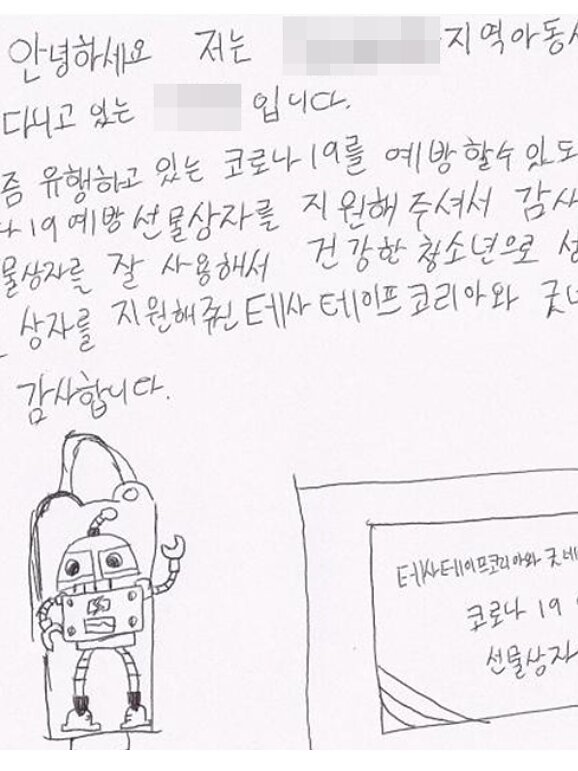 안녕하세요 저는 지역아동
다니고 있는 입니다.
즘 유행하고 있는 코로나19를 예방할수있도
19예방선물상자를 지원해주셔서 감사
물상자를 잘 사용해서 건강한 청소년으로
상자를 지원해주신 테사테이프코리아와 굿
감사합니다.
테사테이프코리아와 굿네
코로나 19
선물상자